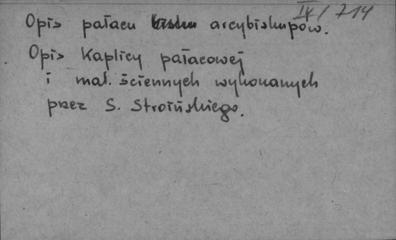 IX/714
Opis pałacu arcybiskupów.
Opis Kaplicy pałacowej
i mal. ściennych wykonanych
przez S. Stroińskiego.